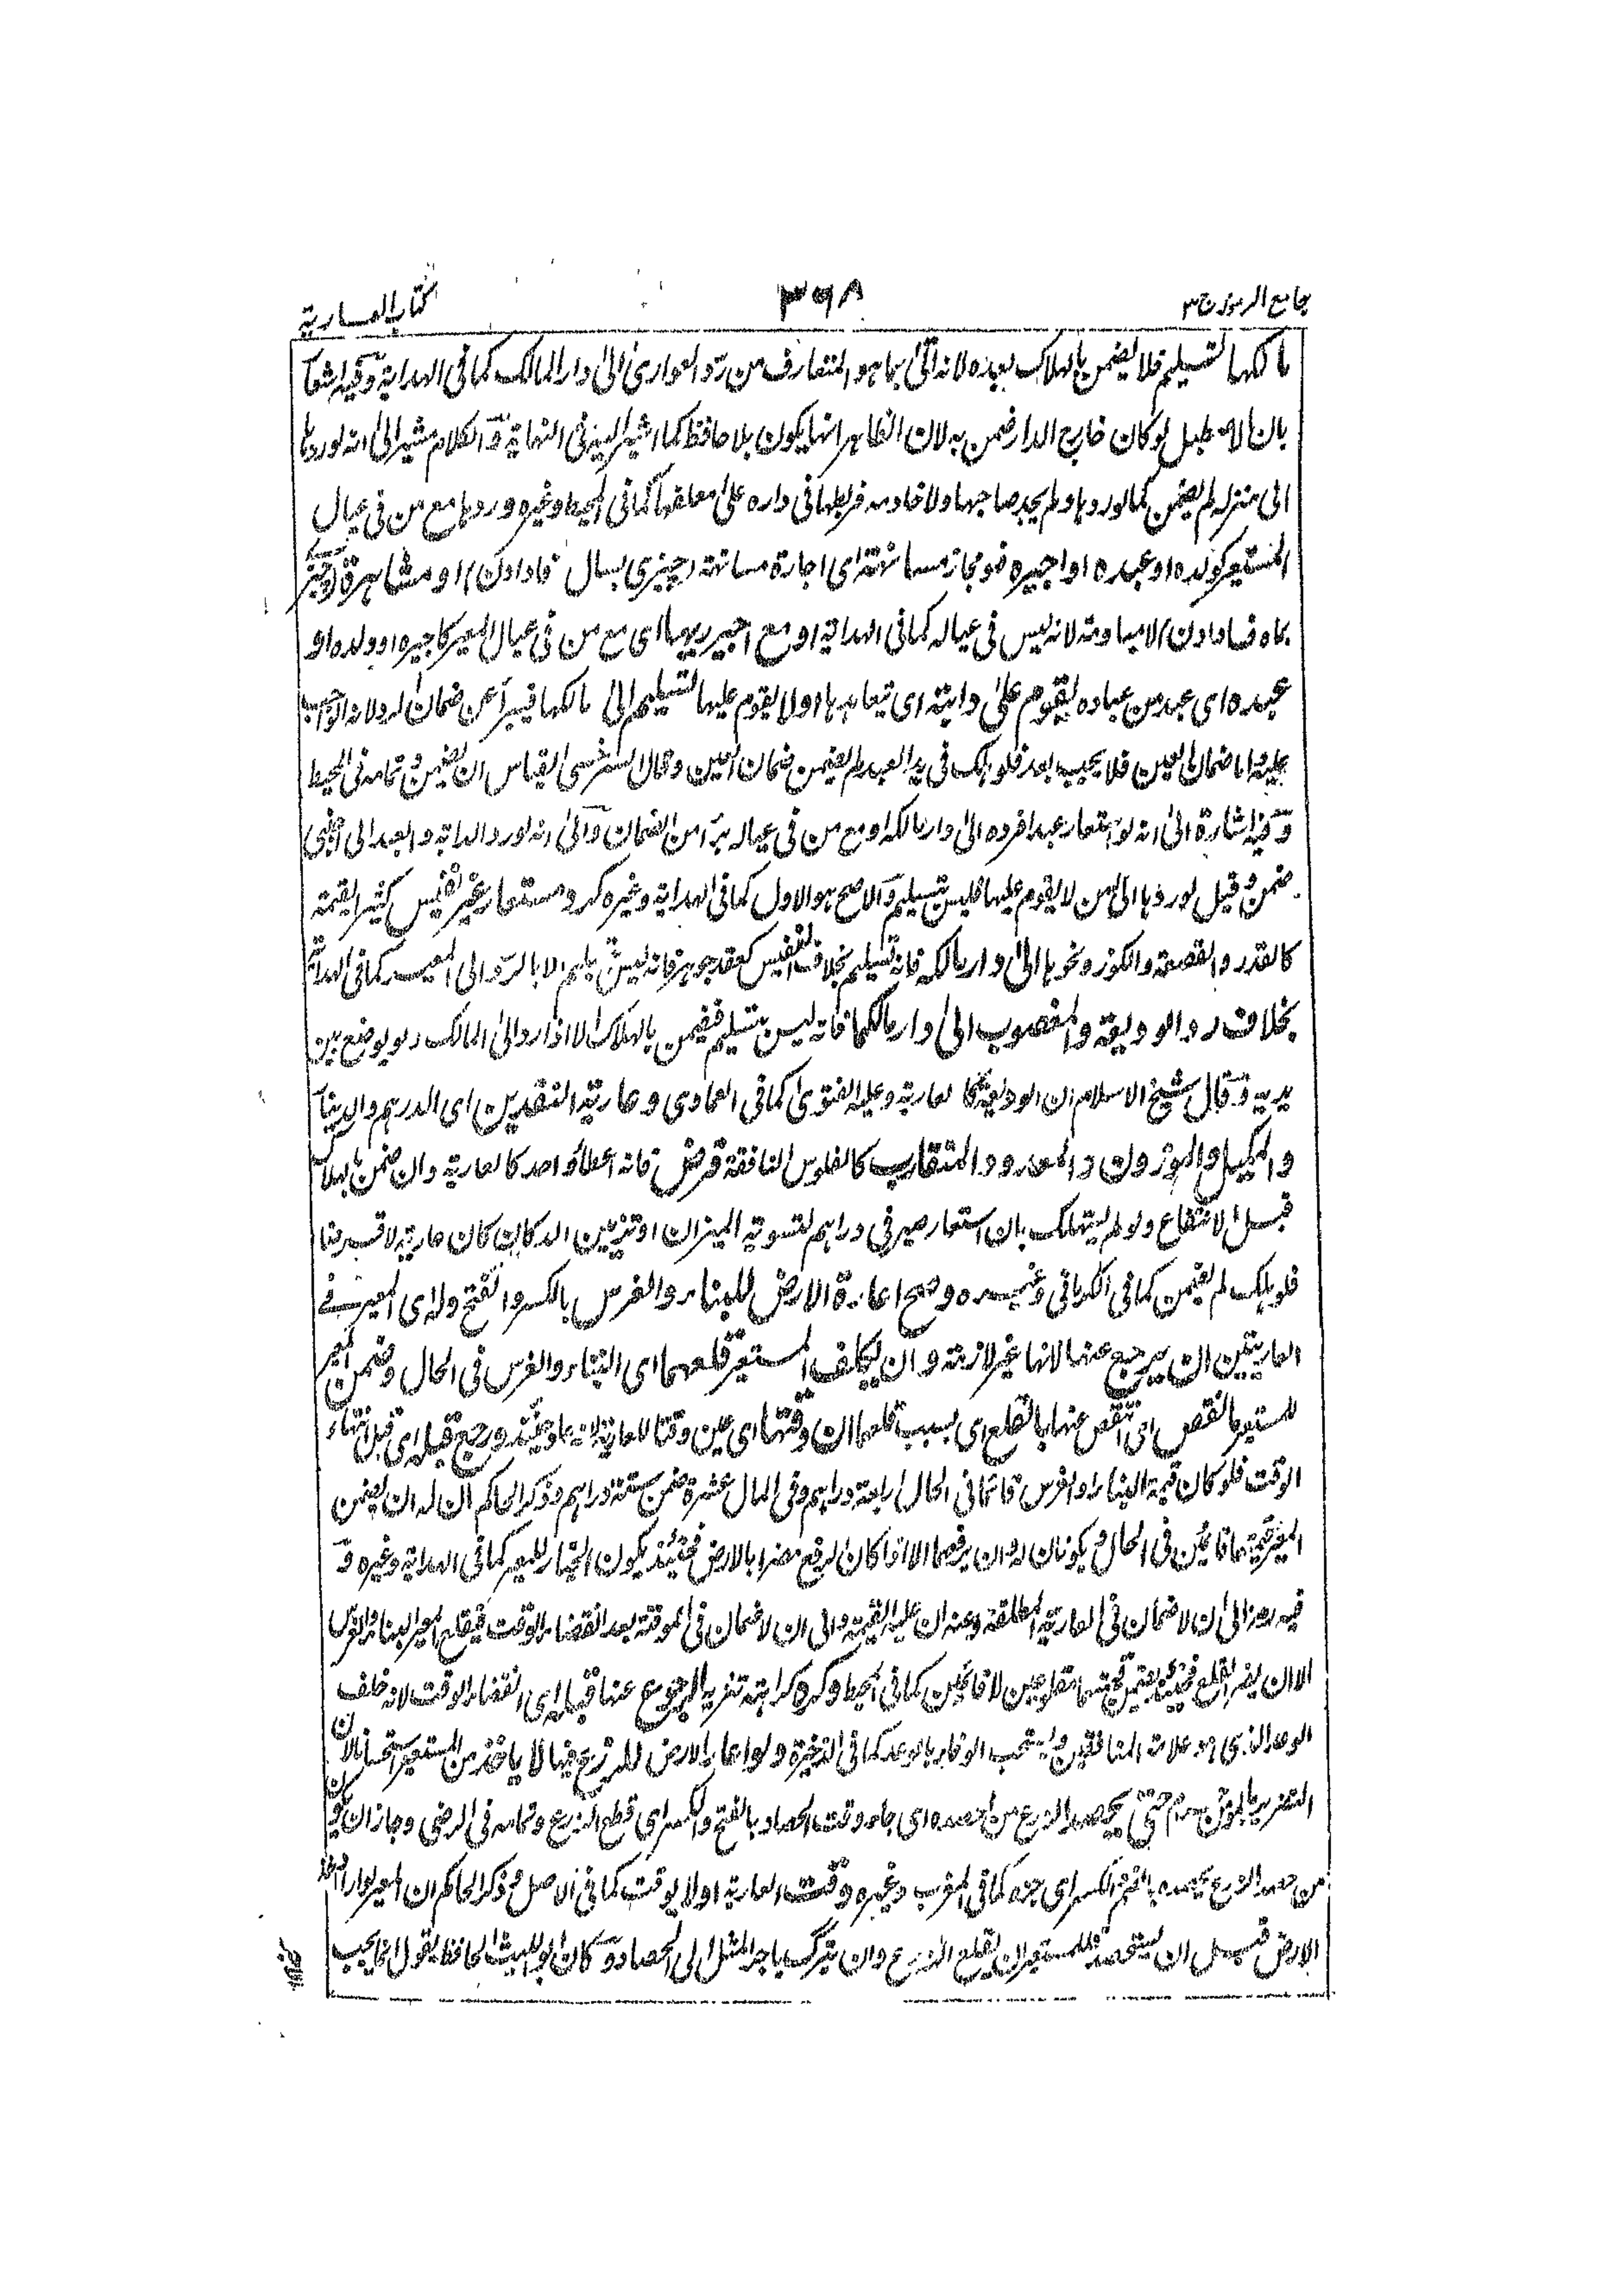 جامع الرموز ج ٣ ٣٩٨ كتاب العارية
مالكها تسليم فلا يضمن بالهلاك بعده لانه اتى بما هو المتعارف من رد العوارى الى دار المالك كما فى الهداية وفيه اشعار
بان الاصطبل لو كان خارج الدار ضمن به لان الظاهر انها يكون بلا حافظ كما اشير اليه فى النهاية والكلام مشير الى انه لو ردها
الى منزله لم يضمن كما لو ردها ولم يجد صاحبها ولا خادمه فربطها فى داره على معلفها كما فى المحيط وغيره وردها مع من فى عيال
المستعير كولده او عبده او اجيره مسانهة اى اجارة مسانهة (چيزى بسال فادادن) او مشاهرة
بماه فادادن) لا مياومة لانه ليس فى عياله كما فى الهداية او مع اجير ربها اى مع من فى عيال المعير كاجيره او ولده او
عبده اى عبد من عباده يقوم على دابته اى يتعاهدها او لا يقوم عليها تسليم الى مالكها فيبرأ عن ضمان الرد لانه الواجب
عليه واما ضمان العين فلا يجب بعد فلو هلك فى يد العبد لم يضمن ضمان العين وقال السرخسى القياس ان يضمن وتمامه فى المحيط
وفيه اشارة الى انه لو استعار عبدا فرده الى دار مالكه او مع من فى عياله برأ من الضمان والى انه لو رد الدابة والعبد الى اجنبى
ضمن وقيل لو ردها الى من لا يقوم عليها فليس بتسليم والاصح هو الاول كما فى الهداية وغيره كرد مستعار غير نفيس كثير القيمة
كالقدر والقصعة والكوز ونحوها الى دار مالكه فانه تسليم بخلاف النفيس كعقد جوهر فانه ليس بتسليم الا بالرد الى المعير كما فى الهداية
بخلاف رد الوديعة والمغصوب الى دار مالكهما فانه ليس بتسليم فيضمن بالهلاك الا اذا رد الى المالك ولو بوضع بين
يديه وقال شيخ الاسلام ان الوديعة كالعارية وعليه الفتوى كما فى العمادى وعارية النقدين اى الدرهم والدينار
والمكيل والموزون والمعدود المتقارب كالفلوس النافقة قرض فانه اعطاء واحد كالعارية وان ضمن بالهلاك
قبل الانتفاع ولو لم يستهلك بان استعار صيرفى دراهم لتسوية الميزان او تزيين الدكان كان عارية لا قرضا
فلو هلك لم يضمن كما فى الكرمانى وغيره وصح اعارة الارض للبناء والغرس بالكسر والفتح وله اى المعير فى
العاريتين ان يرجع عنها لانها غير لازمة وان يكلف المستعير قلعهما اى البناء والغرس فى الحال وضمن المعير
للمستعير ما نقص اى نقص عنها بالقلع اى بسبب قلعهما ان وقتها اى عين وقتا للعارية لانه ورجع قبله اى قبل انتهاء
الوقت فلو كان قيمة البناء والغرس قائما فى الحال اربعة دراهم وفى المال عشرة ضمن ستة دراهم وذكر الحاكم ان له ان يضمن
المعير قيمتهما قائمين فى الحال ويكونان له وان يرفعهما الا اذا كان الرفع مضرا بالارض فحينئذ يكون الخيار للمعير كما فى الهداية وغيره و
فيه رمز الى ان لا ضمان فى العارية المطلقة وعنه ان عليه القيمة والى ان لا ضمان فى الموقتة بعد انقضاء الوقت فيقلع المعير البناء والغرس
الا ان يضر القلع فحينئذ يضمن قيمتهما مقلوعين لا قائمين كما فى المحيط وكره كراهة تنزيه الرجوع عنها قبله اى انقضاء الوقت لانه خلف
الوعد الذى هو علامة المنافقين ويستحب الوفاء بالوعد كما فى الذخيرة ولو اعار الارض للزرع فيها لا ياخذ من المستعير استحسانا لان
حتى يحصد الزرع من احصده اى جاء وقت الحصاد بالفتح والكسر اى قطع الزرع وتمامه فى الرضى وجاز ان يكون
من حصد الزرع يحصده بالضم والكسر اى جزه كما فى المغرب وغيره وقت العارية او لا يوقت كما فى الاصل وذكر الحاكم ان المعير لو اراد اخذ
الارض قبل ان يستحصد فللمستعير ان يقلع الزرع وان يترك باجر المثل الى الحصاد وكان ابو الليث الحافظ يقول انما يجب